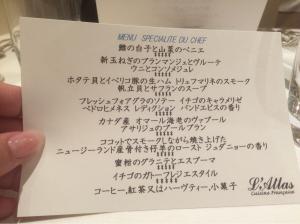 MENU SPECIALITE DU CHEF
鱈の白子と山菜のベニエ
新玉ねぎのブランマンジェとヴルーテ
ウニとコンソメジュレ
ホタテ貝とイベリコ豚の生ハム トリュフマリネのスモーク
帆立貝とサフランのスープ
フレッシュフォアグラのソテー イチゴのキャラメリゼ
ペドロヒメネス レディクション パンドエピスの香り
カナダ産 オマール海老のヴァプール
アサリジュのブールブラン
ココットでスモークしながら焼き上げた
ニュージーランド産骨付き仔羊のロースト ジュダニョーの香り
蜜柑のグラニテとエスプーマ
イチゴのガトーフレジエスタイル
コーヒー,紅茶又はハーヴティー,小菓子
L'Atlas
Cuisine Française